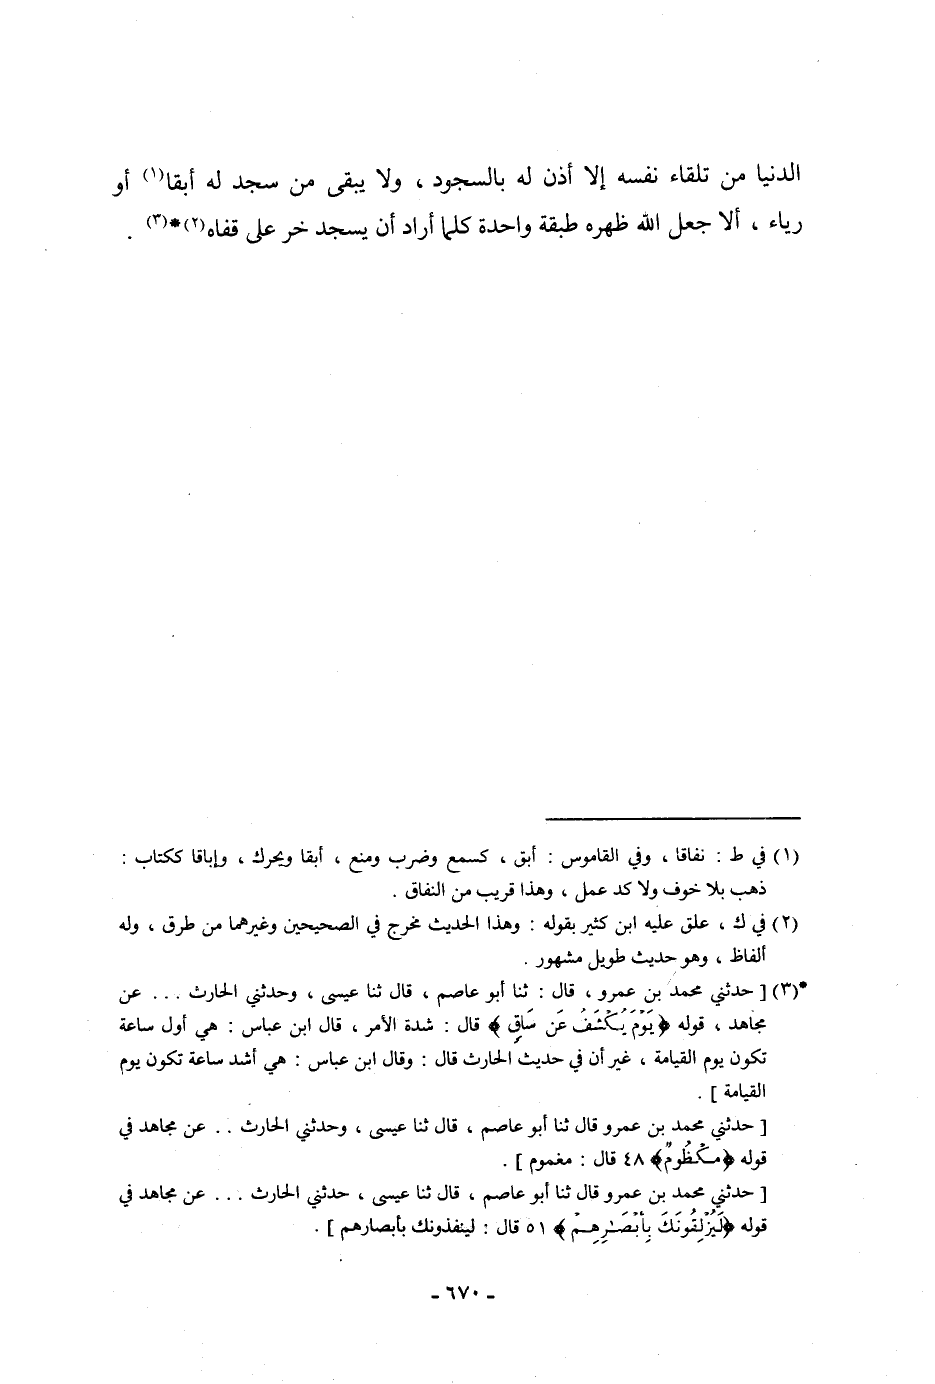 الدنيا من تلقاء نفسه إلا أذن له بالسجود ، ولا يبقى من سجد له أبقا(١) أو
رياء ، ألا جعل الله ظهره طبقة واحدة كلما أراد أن يسجد خر على قفاه(٢)*(٣) .
(١) في ط : نفاقا ، وفي القاموس : أبق ، كسمع وضرب ومنع ، أبقا ويحرك ، وإباقا ككتاب :
ذهب بلا خوف ولا كد عمل ، وهذا قريب من النفاق .
(٢) في ك ، علق عليه ابن كثير بقوله : وهذا الحديث مخرج في الصحيحين وغيرهما من طرق ، وله
ألفاظ ، وهو حديث طويل مشهور .
*(٣) [ حدثني محمد بن عمرو ، قال : ثنا أبو عاصم ، قال ثنا عيسى ، وحدثني الحارث ... عن
مجاهد ، قوله ﴿يَوْمَ يُكْشَفُ عَن سَاقٍ ﴾ قال : شدة الأمر ، قال ابن عباس : هي أول ساعة
تكون يوم القيامة ، غير أن في حديث الحارث قال : وقال ابن عباس : هي أشد ساعة تكون يوم
القيامة ] .
[ حدثني محمد بن عمرو قال ثنا أبو عاصم ، قال ثنا عيسى ، وحدثني الحارث .. عن مجاهد في
قوله ﴿مَكْظُومٌ﴾ ٤٨ قال : مغموم ] .
[ حدثني محمد بن عمرو قال ثنا أبو عاصم ، قال ثنا عيسى ، حدثني الحارث ... عن مجاهد في
قوله ﴿لَيُزْلِقُونَكَ بِأَبْصَٰرِهِمْ ﴾ ٥١ قال : لينفذونك بأبصارهم ] .
- ٦٧٠ -